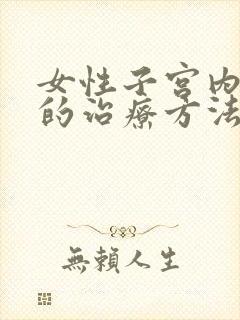 女性子宫内
的治療方法
無賴人生